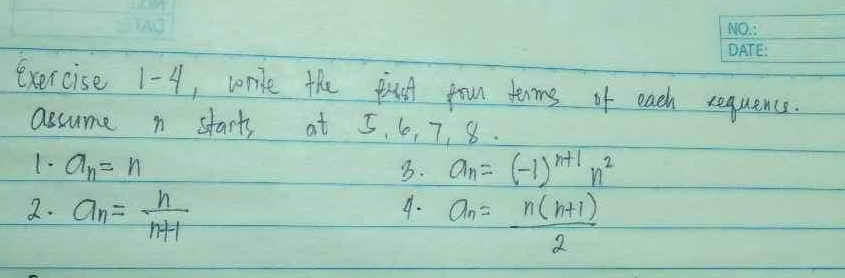 NO.:
DATE:
Exercise 1-4, write the first four terms of each sequence.
assume n starts at 5, 6, 7, 8.
1. aₙ = n
3. aₙ = (-1)ⁿ⁺¹ n²
2. aₙ = n/(n+1)
4. aₙ = n(n+1)/2